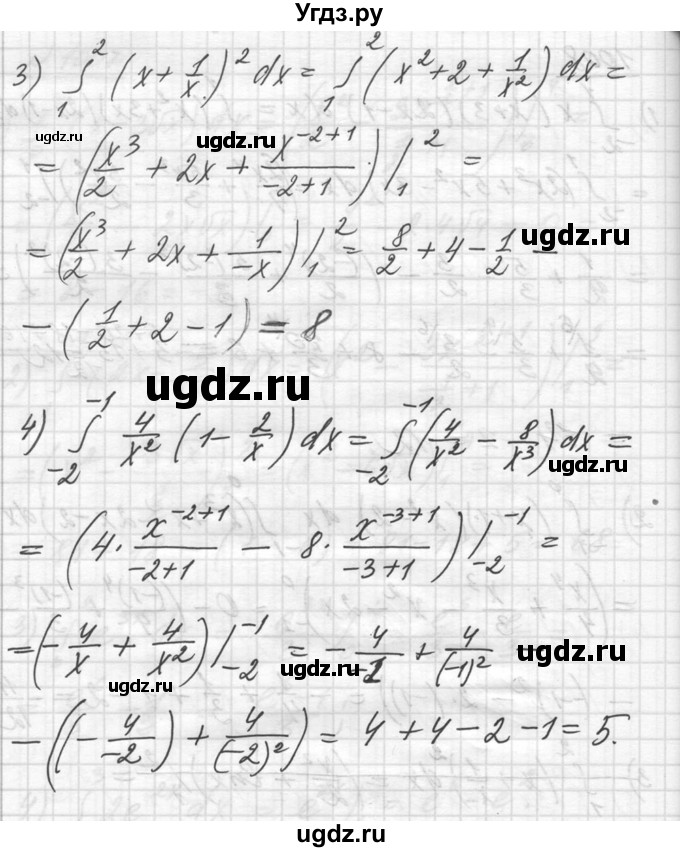 Угдз.ру
3) ∫₁² (x + 1/x)² dx = ∫₁² (x² + 2 + 1/x²) dx =
ugdz.ru
ugdz.ru
= (x³/2 + 2x + x^(-2+1)/(-2+1)) |₁² =
= (x³/2 + 2x + 1/(-x)) |₁² = 8/2 + 4 - 1/2 -
ugdz.ru
- (1/2 + 2 - 1) = 8
ugdz.ru
4) ∫₋₂⁻¹ 4/x² (1 - 2/x) dx = ∫₋₂⁻¹ (4/x² - 8/x³) dx =
ugdz.ru
= (4 · x^(-2+1)/(-2+1) - 8 · x^(-3+1)/(-3+1)) |₋₂⁻¹ =
= (-4/x + 4/x²) |₋₂⁻¹ = - 4/-1 + 4/(-1)²
ugdz.ru
ugdz.ru
ugdz.ru
- ((-4/-2) + 4/(-2)²) = 4 + 4 - 2 - 1 = 5.
ugdz.ru
ugdz.ru
ugdz.ru